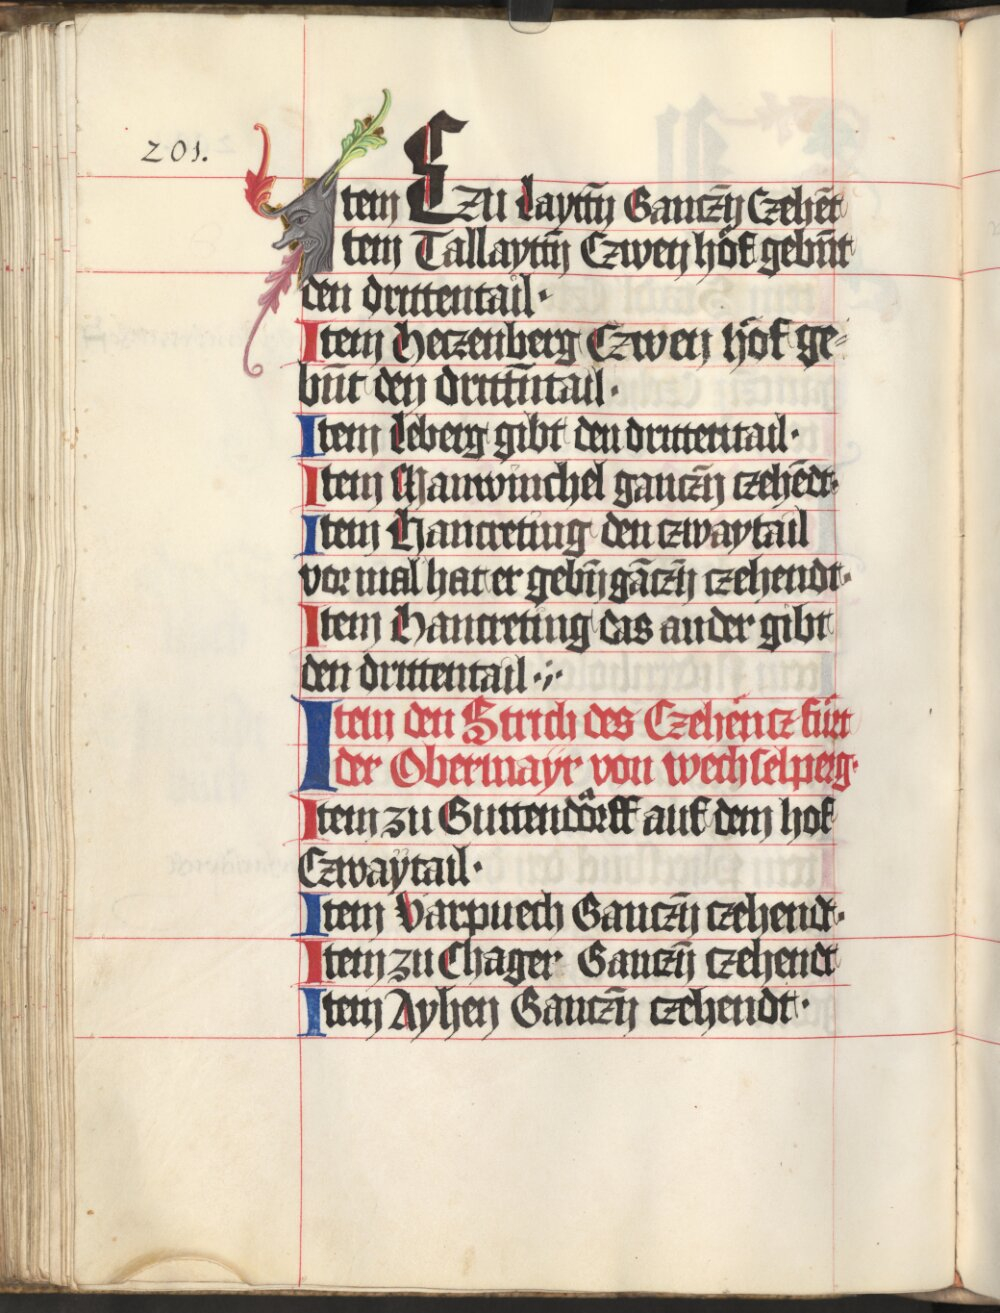 201.
Item Czu Laytñ Ganczñ Czehēt
Item Tallaytñ Czwen höf gebñt
den drittentail·
Item Herzenberg Czwen höf ge-
bñt den drittñtail·
Item Leberg gibt den drittentail·
Item Manwinchel ganczñ czehēdt·
Item Hancreting den czwaytail
vor mal hat er gebñ gāczñ czehendt·
Item Hancreting das ander gibt
den drittentail·:·
Item den Strich des Czehencz fürt
der Obermayr von wechselperg·
Item zu Guttendörff auf dem hof
Czwaÿtail·
Item Varpuech Ganczñ czehendt·
Item zu Chager Ganczñ czehendt
Item Ayhen Ganczñ czehendt·